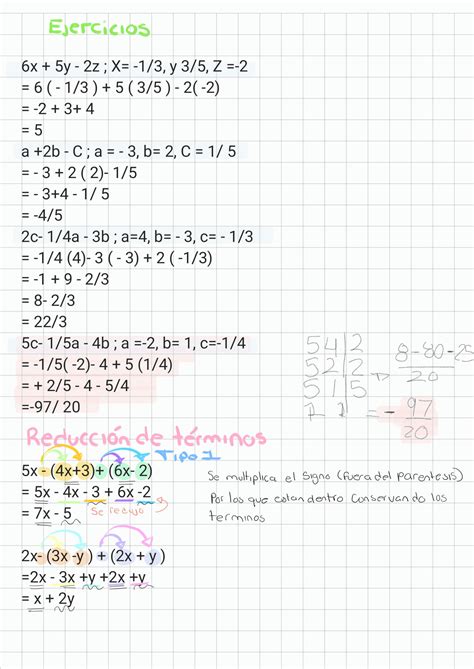 Ejercicios
6x + 5y - 2z ; X= -1/3, y 3/5, Z =-2
= 6 ( - 1/3 ) + 5 ( 3/5 ) - 2( -2)
= -2 + 3+ 4
= 5
a +2b - C ; a = - 3, b= 2, C = 1/ 5
= - 3 + 2 ( 2)- 1/5
= - 3+4 - 1/ 5
= -4/5
2c- 1/4a - 3b ; a=4, b= - 3, c= - 1/3
= -1/4 (4)- 3 ( - 3) + 2 ( -1/3)
= -1 + 9 - 2/3
= 8- 2/3
= 22/3
5c- 1/5a - 4b ; a =-2, b= 1, c=-1/4
= -1/5( -2)- 4 + 5 (1/4)
= + 2/5 - 4 - 5/4
=-97/ 20
5 4 | 2
5 2 | 2
5 1 | 5
1 1 |
8-80-25
20
= - 97
20
Reducción de términos
Tipo 1
5x - (4x+3)+ (6x- 2)
= 5x - 4x - 3 + 6x -2
= 7x - 5
Se reduce
Se multiplica el signo (fuera del parentesis)
Por los que estan dentro conservando los
terminos
2x- (3x -y ) + (2x + y )
=2x - 3x +y +2x +y
= x + 2y